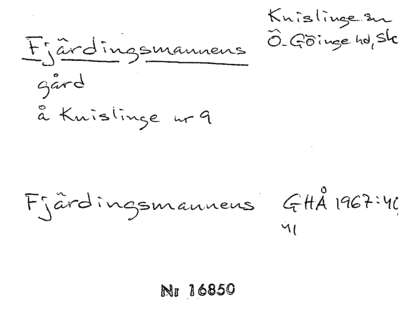 Knislinge sn
Fjärdingsmannens
Ö. Göinge hd, Sk
gård
å Knislinge nr 9
Fjärdingsmannens GHÅ 1967:40
41
Nr 16850